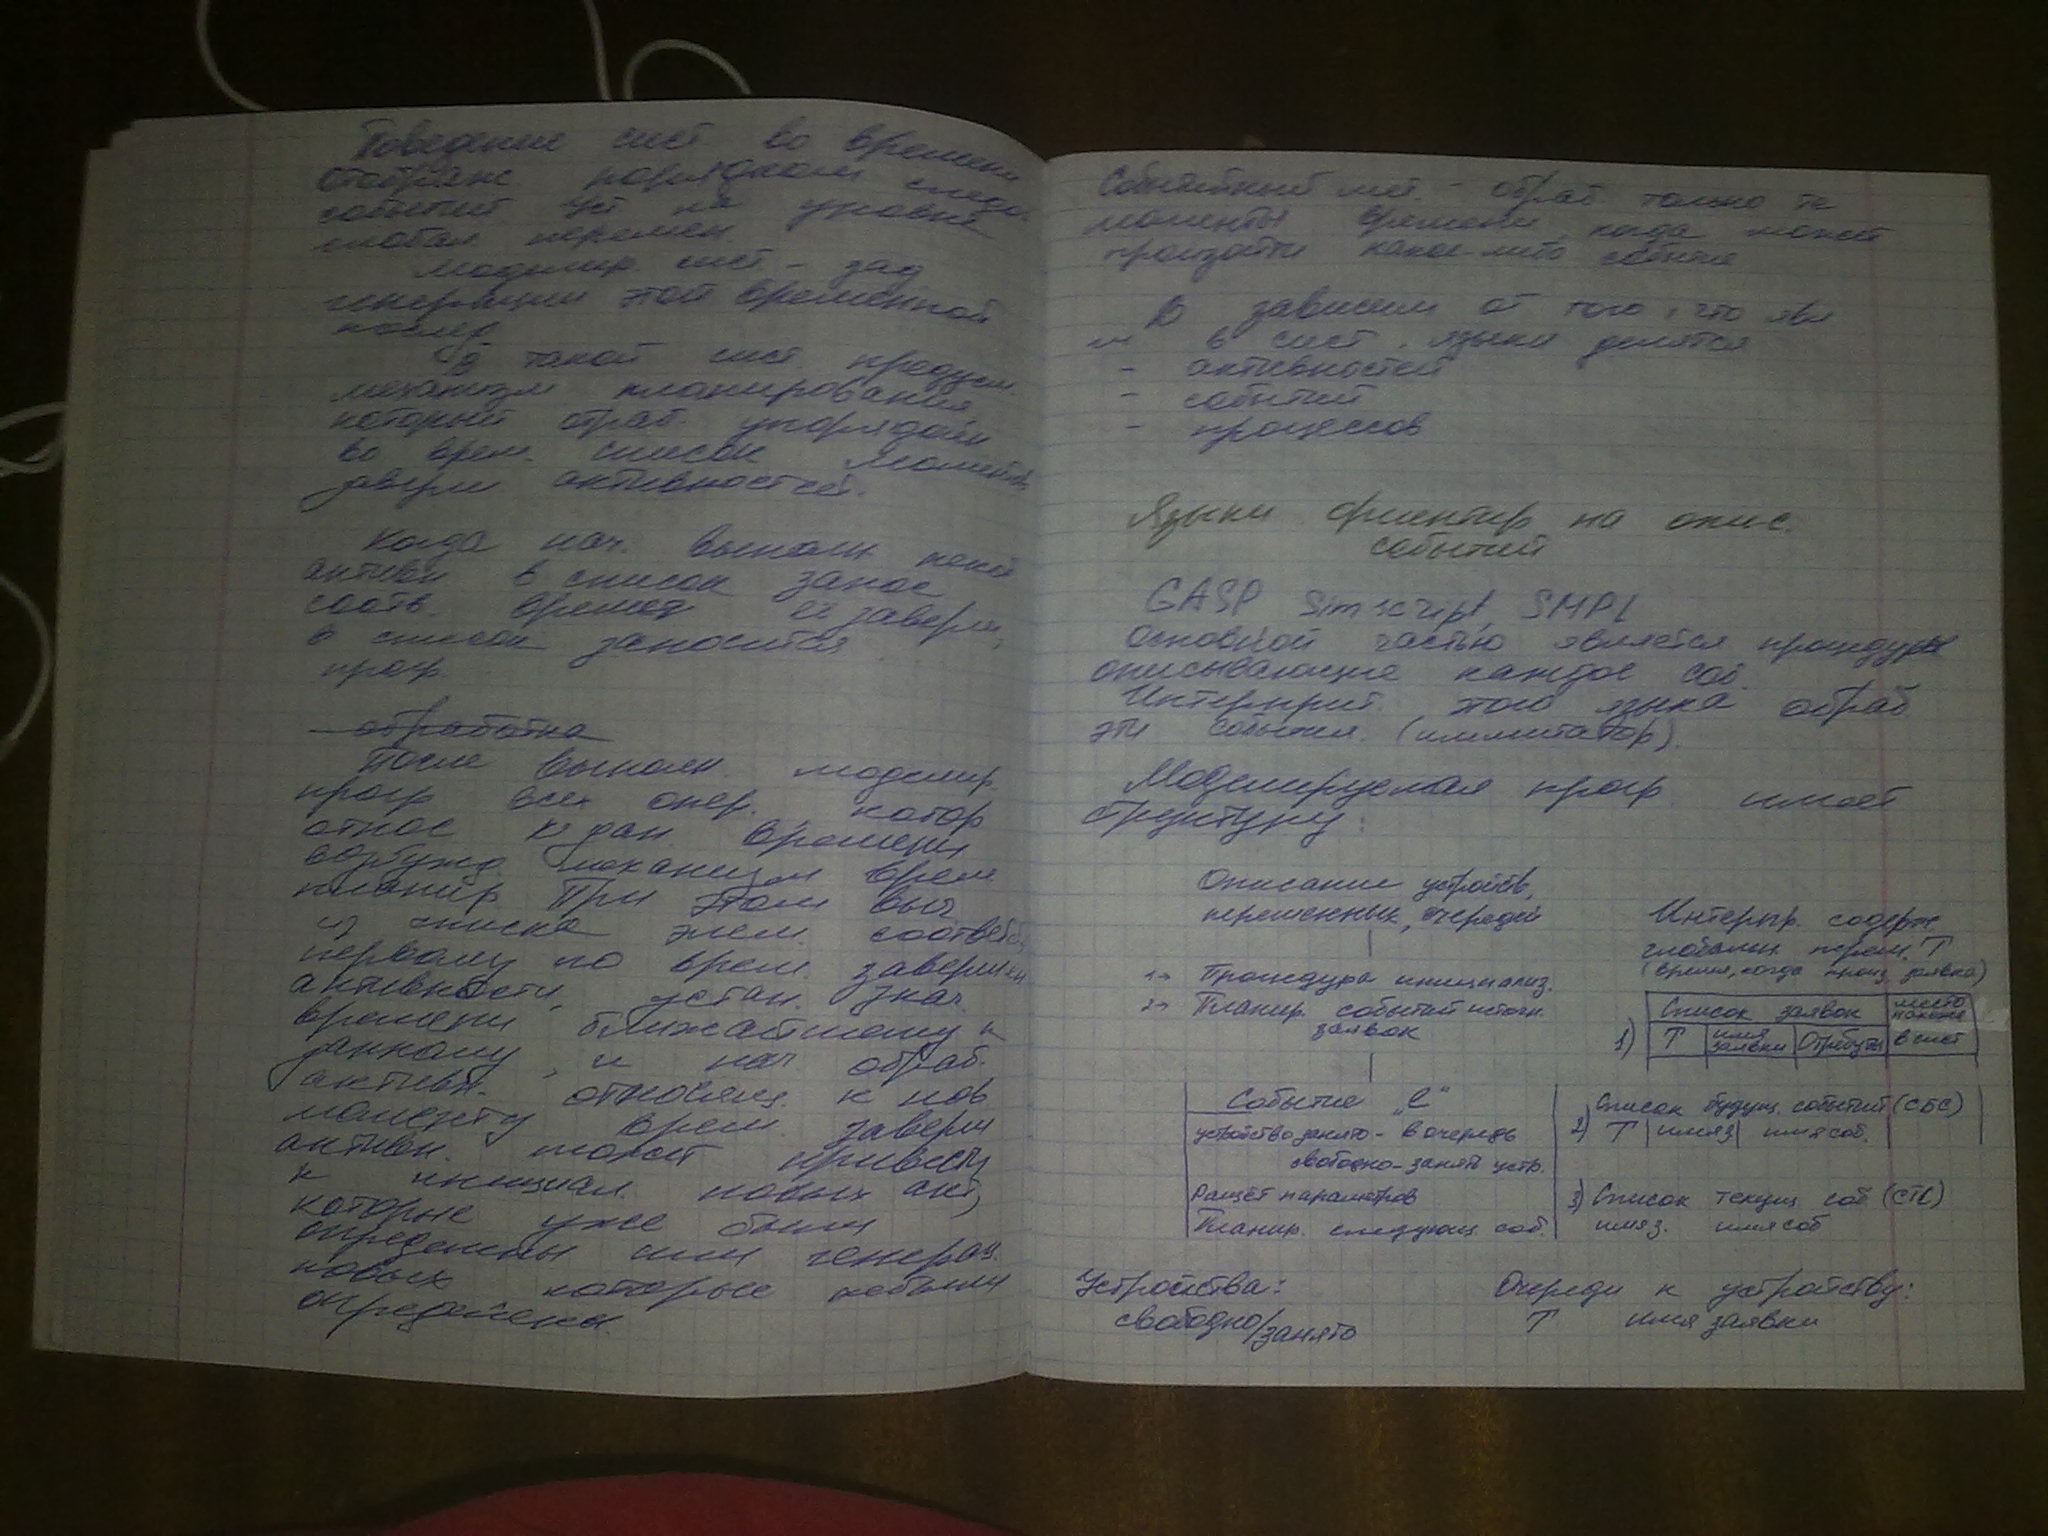 Поведение сист во времени
отображ порядком след.
событий уст на уровне
глобал перемен.
Моделир. сист - зад
генерации этой временной
послед.
В такой сист. предусм.
механизм планирования,
который отраб. упорядоч
во врем. список моментов
заверш активностей.
Когда нач. выполн некой
активн в список занос
соотв. время её заверш,
в список заносится
прогр.
обработка
После выполн. моделир.
прогр всех опер., котор
относ к дан. времени
возбужд механизм врем.
планир При этом выч
из списка элем. соответств
первому по врем. заверш
активности, устан. знач.
времени ближайшему к
данному, и нач обраб.
активн. относящ к нов
моменту врем. заверш
активн. может привести
к инициал. новых акт,
которые уже были
определены или генерац.
новых которые не были
определены.
Событийный мет. - обраб только те
моменты времени, когда может
произойти какое-либо событие
В зависим от того, что явл
в сист, языки делятся
- активностей
- событий
- процессов
Языки ориентир на опис.
событий
GASP Simscript, SMPL
Основной частью является процедура
описывающие каждое соб.
Интерприт. этого языка обраб
эти события. (иммитатор).
Моделируемая прогр имеет
структуру:
Описание устройств,
переменных, очередей
1-> Процедура инициализ.
2-> Планир. событий источн.
заявок
Событие "C"
устройство занято - в очередь
свободно - занять устр.
Расщёт параметров
Планир. следующ. соб.
Интерпр. содерж.
глобальн. перем. T
(время, когда произ заявка)
Список заявок | место нахожд
1) T | имя заявки | Отребуты | в сист
Список будущ. событий (СБС)
2) T | имя з | имя соб.
3) Список текущ соб (СТС)
имя з. имя соб
Устройства:
свободно/занято
Очереди к устройству:
T имя заявки